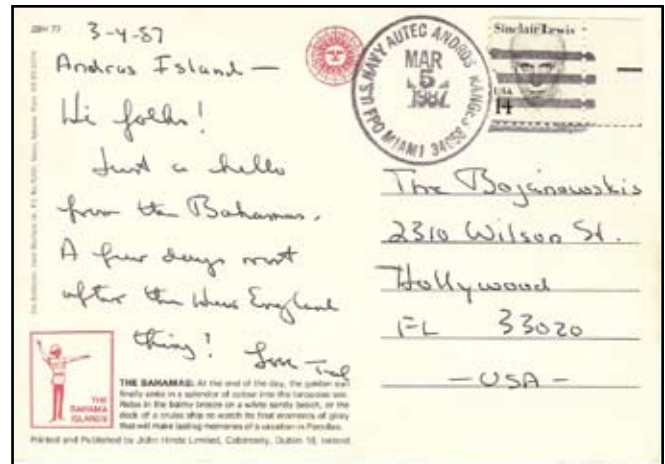 3-4-87
Andros Island —
Hi folks!
Just a hello
from the Bahamas.
A few days rest
after the New England
thing! Love Ted
THE BAHAMA ISLANDS
THE BAHAMAS: At the end of the day, the golden sun
finally sinks in a splendor of colour into the turquoise sea.
Relax in the balmy breeze on a white sandy beach, or the
deck of a cruise ship to watch its final moments of glory
that will make lasting memories of a vacation in Paradise.
Printed and Published by John Hinde Limited, Cabinteely, Dublin 18, Ireland.
U.S. NAVY AUTEC ANDROS RANGES
FPO MIAMI 34058
MAR
5
1987
Sinclair Lewis
USA
14
The Bojanowskis
2310 Wilson St.
Hollywood
FL 33020
— USA —